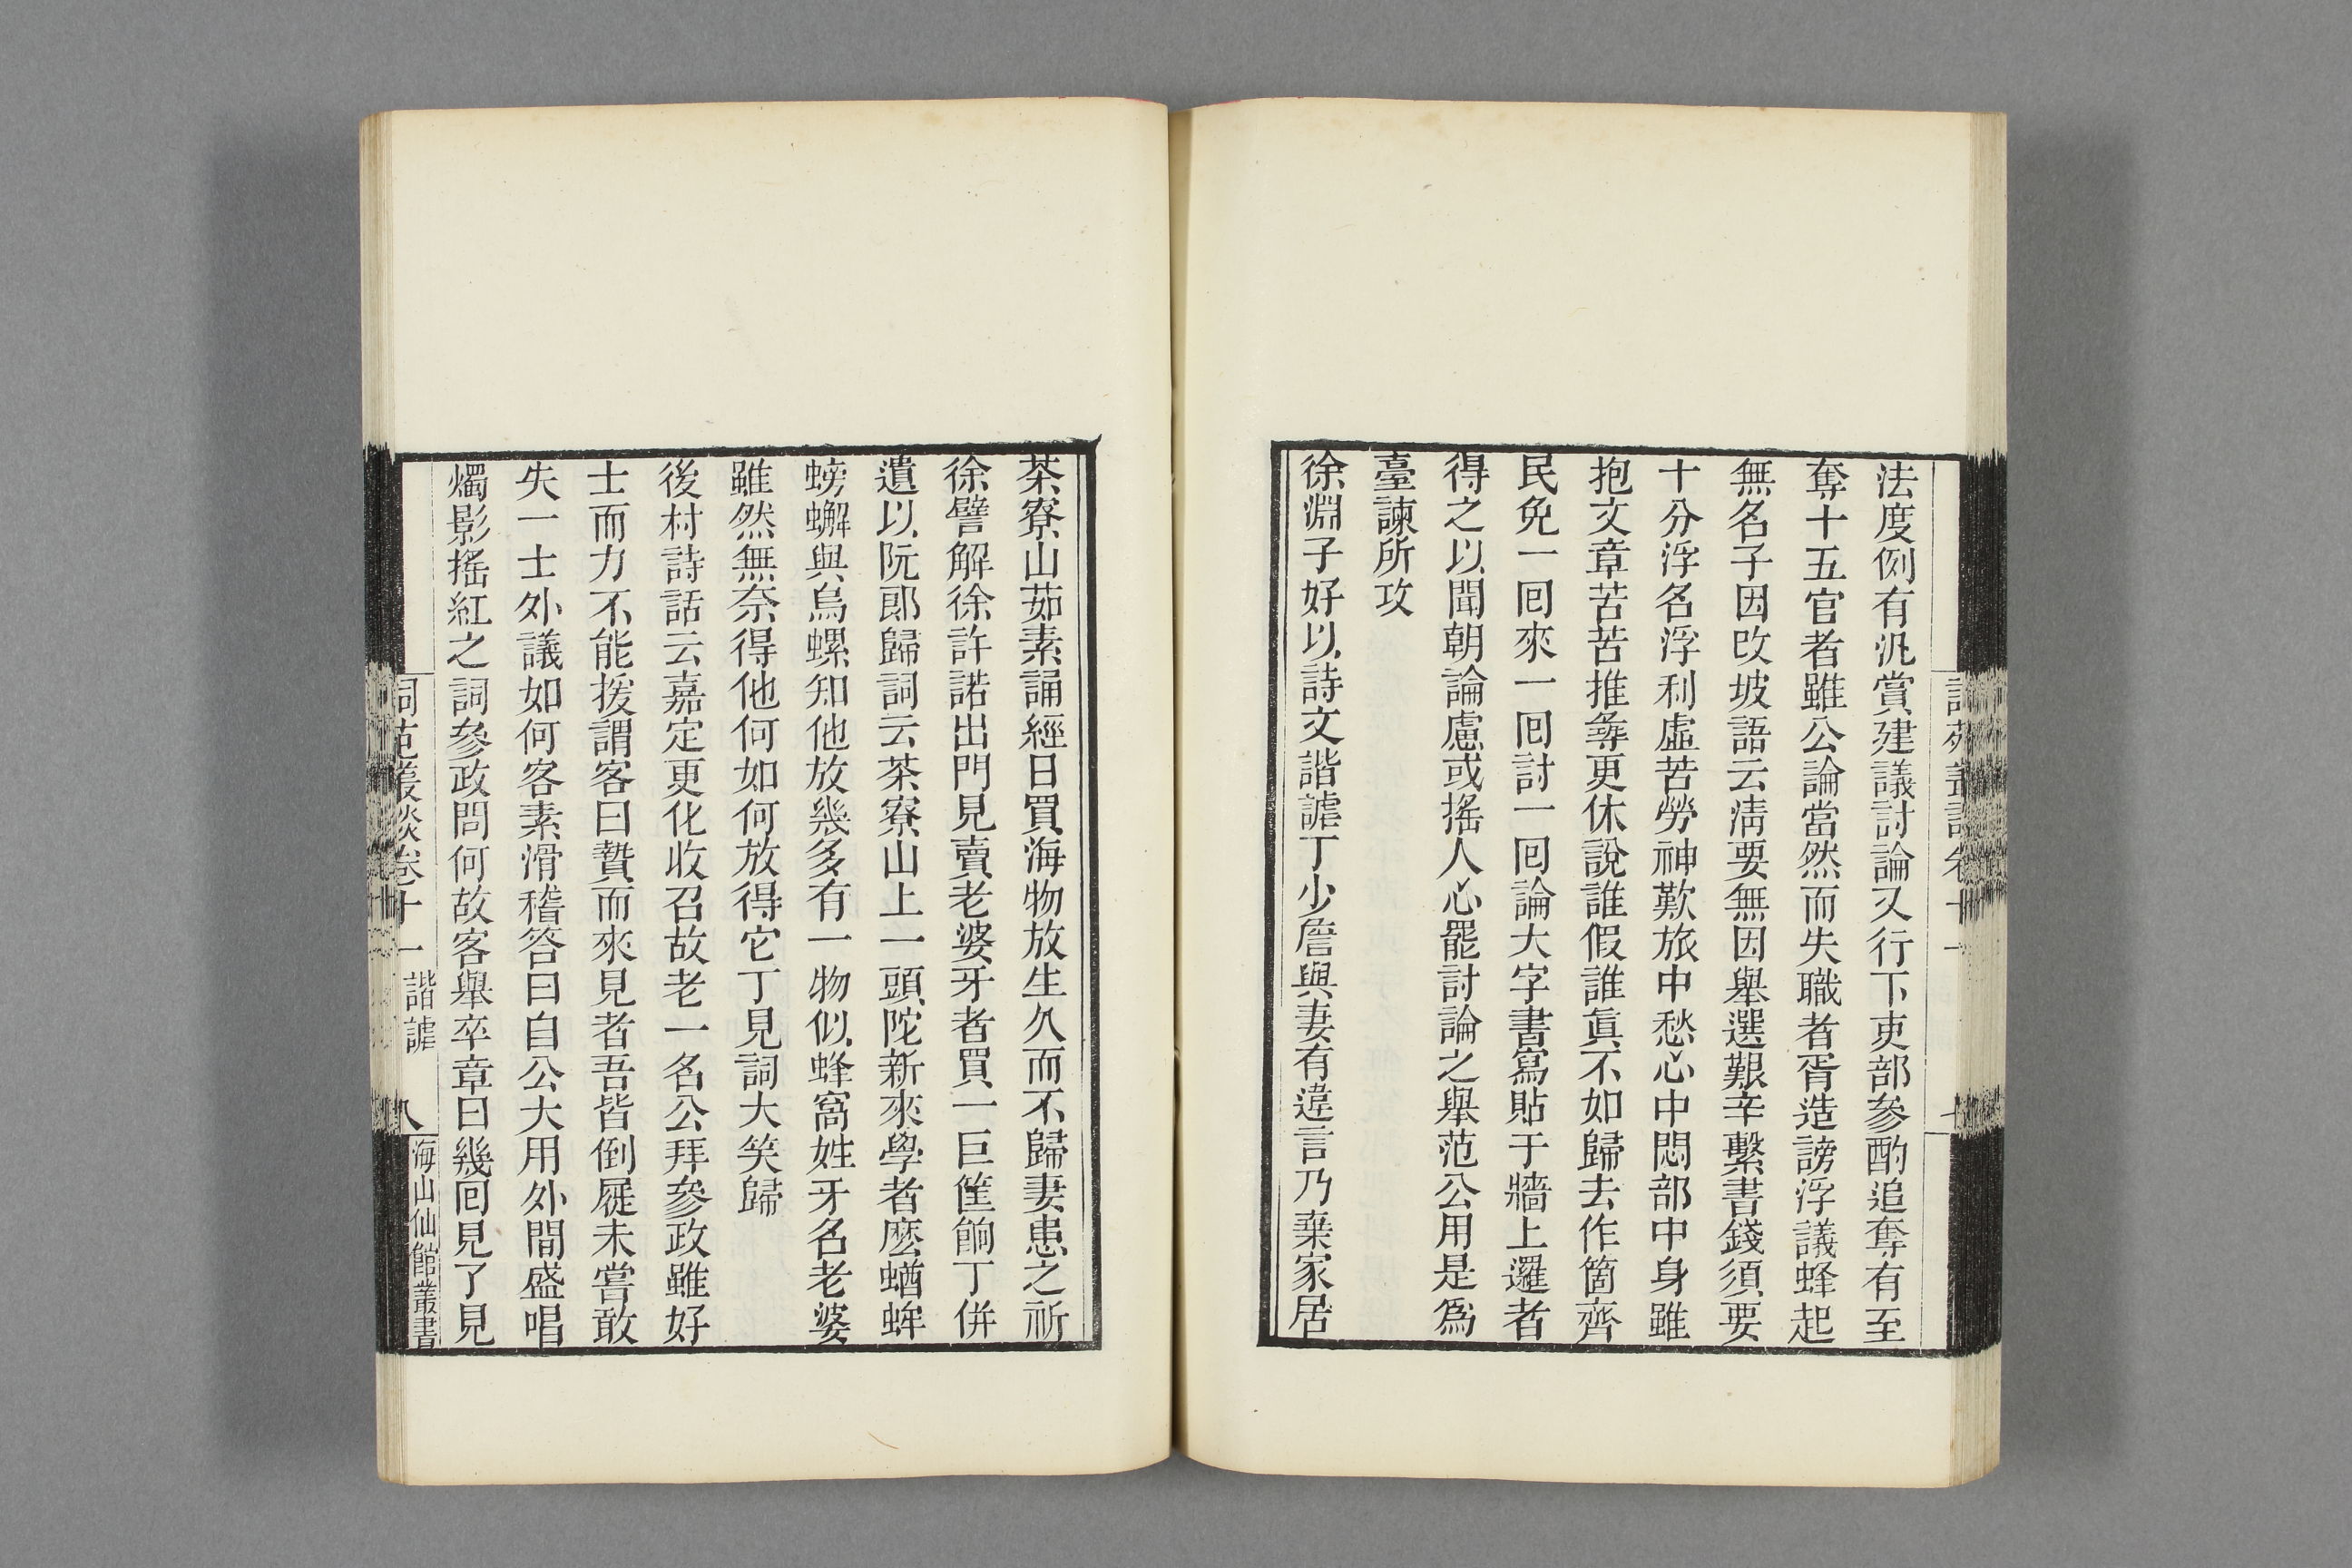 法度例有汎賞建議討論又行下吏部參酌追奪有至
奪十五官者雖公論當然而失職者胥造謗浮議蜂起
無名子因改坡語云清要無因舉選艱辛繫書錢須要
十分浮名浮利虛苦勞神歎旅中愁心中悶部中身雖
抱文章苦苦推尋更休說誰假誰眞不如歸去作箇齊
民免一回來一回討一回論大字書寫貼于牆上邏者
得之以聞朝論慮或搖人心罷討論之舉范公用是爲
臺諫所攻
徐淵子好以詩文諧謔丁少詹與妻有違言乃棄家居
茶寮山茹素誦經日買海物放生久而不歸妻患之祈
徐譬解徐許諾出門見賣老婆牙者買一巨筐餉丁併
遺以阮郎歸詞云茶寮山上一頭陀新來學者麽蝤蛑
螃蠏與烏螺知他放幾多有一物似蜂窩姓牙名老婆
雖然無奈得他何如何放得它丁見詞大笑歸
後村詩話云嘉定更化收召故老一名公拜參政雖好
士而力不能援謂客曰贄而來見者吾皆倒屣未嘗敢
失一士外議如何客素滑稽答曰自公大用外間盛唱
燭影搖紅之詞參政問何故客舉卒章曰幾回見了見
詞苑叢談卷十一 諧謔 八 海山仙館叢書